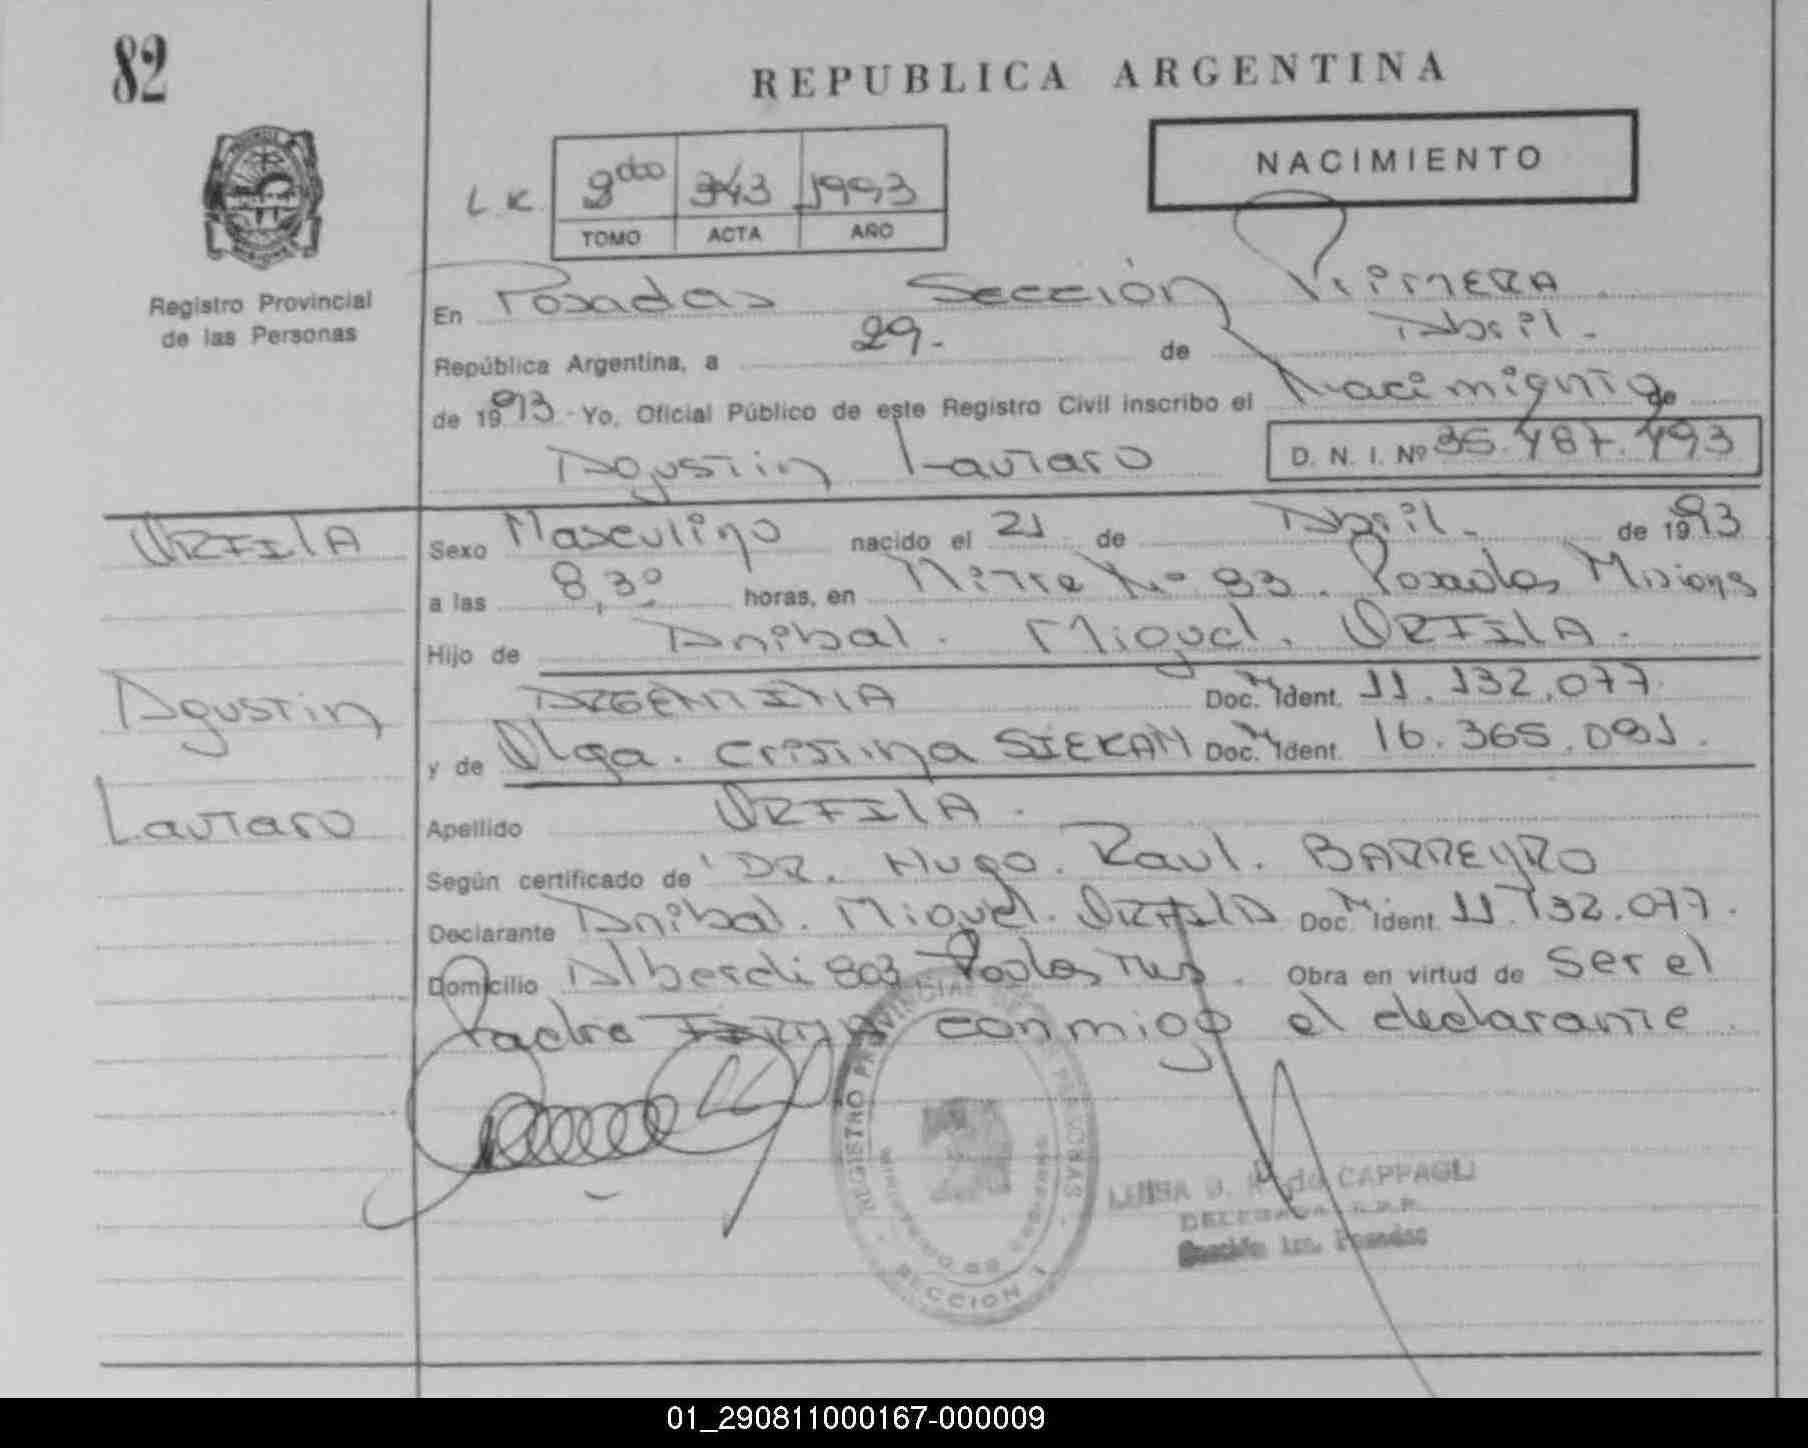 82
REPUBLICA ARGENTINA
NACIMIENTO
L.K. 2do 343 1993
TOMO ACTA AÑO
Registro Provincial
de las Personas
En Posadas Sección Primera
República Argentina, a 29. de Abril.
de 1993 - Yo, Oficial Público de este Registro Civil inscribo el Nacimiento de
Agustin Lautaro D. N. I. Nº
ORFILA
Agustin
Lautaro
Sexo Masculino nacido el 21 de Abril. de 1993
a las 8,30 horas, en Mitre Nº 93. Posadas Misiones
Hijo de Anibal. Miguel. ORFILA.
ARGENTINA Doc. M Ident. 11.132.077.
y de Olga. Cristina SIEKAN Doc. M Ident. 16.365.091.
Apellido ORFILA.
Según certificado de DR. Hugo. Raul. BARREYRO
Declarante Anibal. Miguel. ORFILA Doc. M Ident. 11.132.077.
Domicilio Alberdi 803 Obra en virtud de ser el
Padre FIRMA conmigo el declarante
REGISTRO PROVINCIAL DE LAS PERSONAS
MINISTERIO DE GOBIERNO
SECCION 1
LUISA de CAPPAGLI
DELEGADA R.P.P.
Sección 1ra. Posadas
01_290811000167-000009